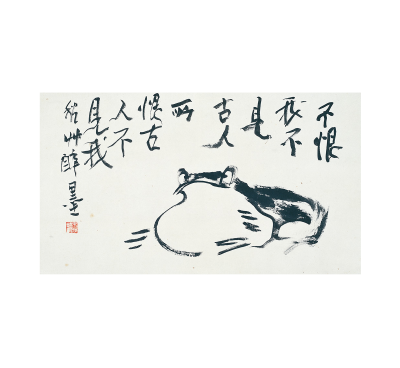 不恨
我不
見
古人
所
恨古
人不
見我
醉墨